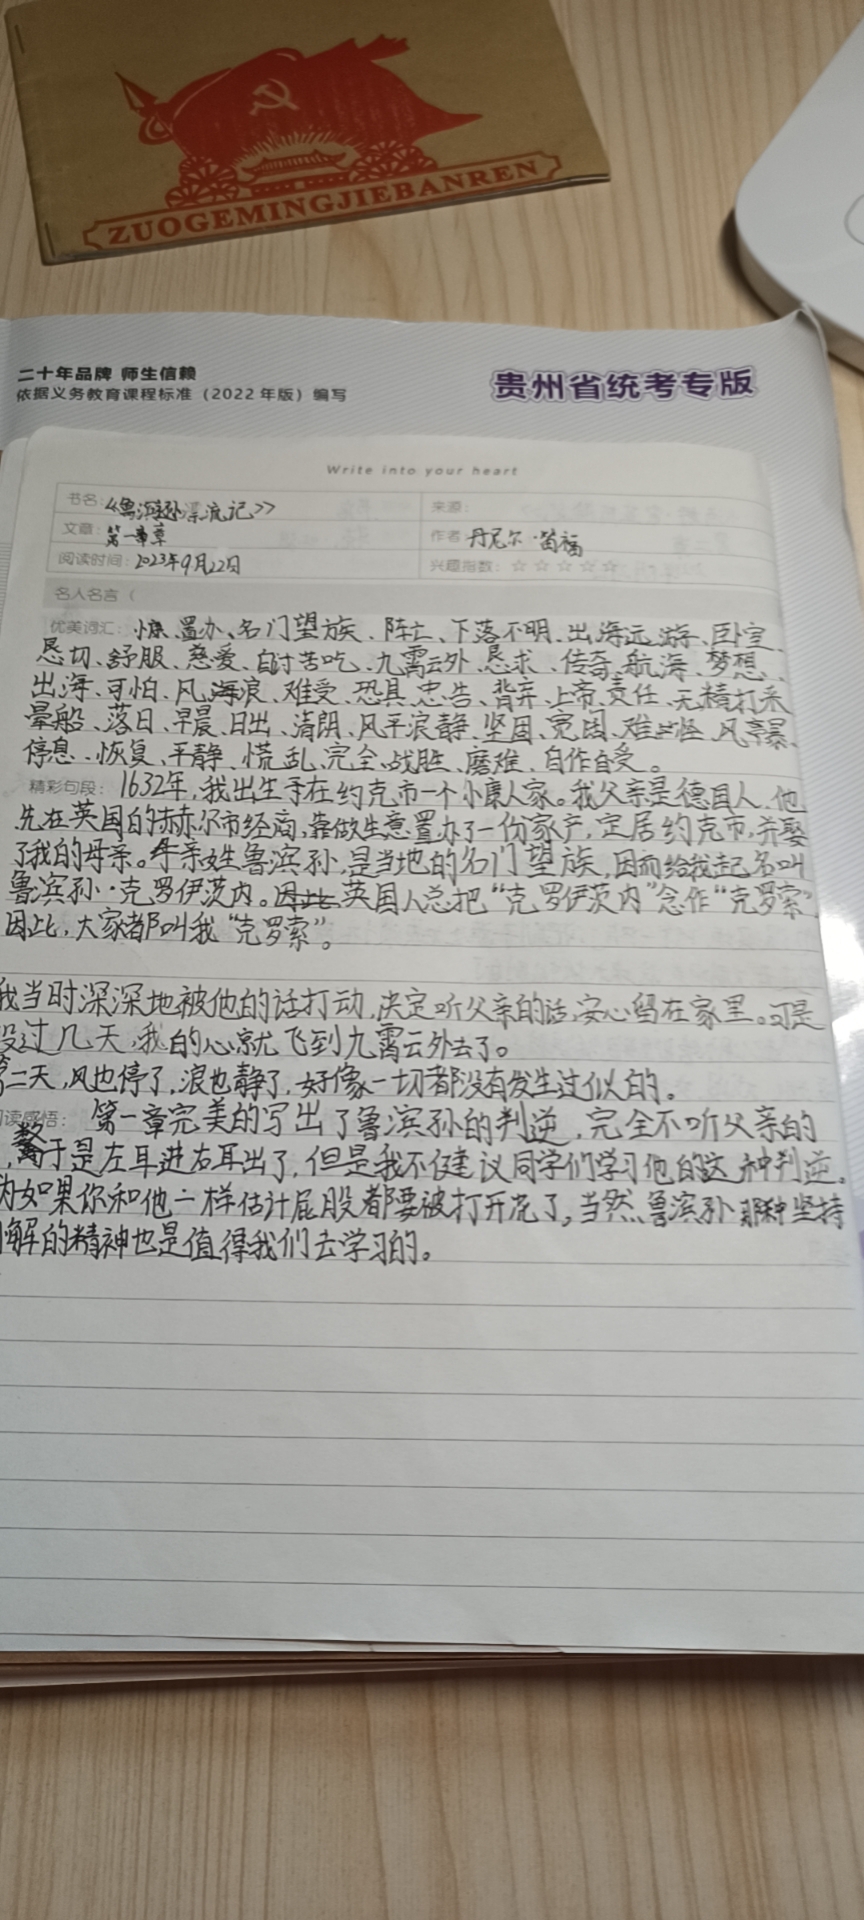 ZUOGEMINGJIEBANREN
二十年品牌 师生信赖
依据义务教育课程标准（2022年版）编写
贵州省统考专版
Write into your heart
书名：《鲁滨逊漂流记》
来源：
文章：第一章章
作者 丹尼尔·笛福
阅读时间：2023年9月22日
兴趣指数：☆☆☆☆☆
名人名言（
优美词汇：小康、置办、名门望族、阵亡、下落不明、出海远游、卧室、
恳切、舒服、慈爱、自讨苦吃、九霄云外、恳求、传奇、航海、梦想、
出海、可怕、风、海浪、难受、恐具、忠告、背弃、上帝、责任、无精打采
晕船、落日、早晨、日出、清朗、风平浪静、坚固、宽阔、难怪、风暴、
停息、恢复、平静、慌乱、完全、战胜、磨难、自作自受。
精彩句段：1632年，我出生于在约克市一个小康人家。我父亲是德国人，他
先在英国的赫尔市经商，靠做生意置办了一份家产，定居约克市，并娶
了我的母亲。母亲姓鲁滨孙，是当地的名门望族，因而给我起名叫
鲁滨孙·克罗伊茨内。因此英国人总把“克罗伊茨内”念作“克罗索”，
因此，大家都叫我“克罗索”。
我当时深深地被他的话打动，决定听父亲的话，安心留在家里。可是
没过几天，我的心就飞到九霄云外去了。
第二天，风也停了，浪也静了，好像一切都没有发生过似的。
阅读感悟：第一章完美的写出了鲁滨孙的判逆，完全不听父亲的
，于是左耳进右耳出了，但是我不建议同学们学习他的这种判逆。
为如果你和他一样估计屁股都要被打开花了，当然，鲁滨孙那种坚持
懈的精神也是值得我们去学习的。